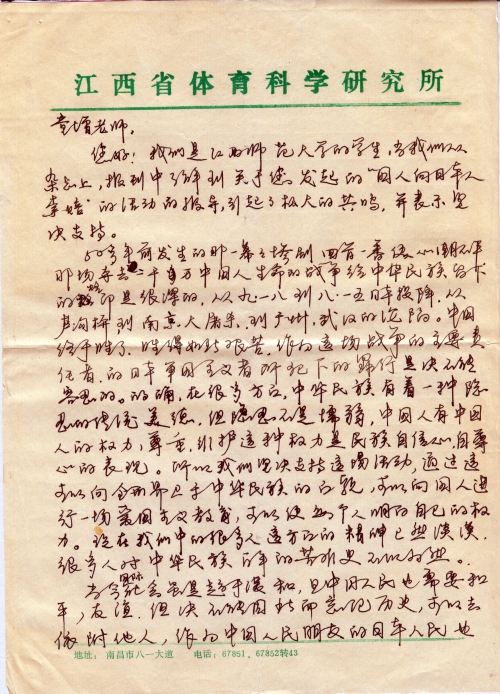 江西省体育科学研究所
童增老师，
您好！我们是江西师范大学的学生，当我们从
杂志上，报刊中了解到关于您发起的“国人向日本人
索赔”的活动的报导，引起了极大的共鸣，并表示坚
决支持。
50多年前发生的那一幕幕惨剧，回首一番
那场夺去二千多万中国人生命的战争给中华民族留下
的烙印是很深的，从九一八到八一五日本投降，从
卢沟桥到南京大屠杀，到广州、武汉的沦陷。中国
终于胜了，胜得如此艰苦，作为这场战争的主要责
任者，的日本军国主义者所犯下的罪行是决不能
容忍的。的确，在很多方面，中华民族有着一种隐
忍的传统美德，但隐忍不是懦弱，中国人有中国
人的权力，尊重，维护这种权力是民族自信心，自尊
心的表现。所以我们坚决支持这场活动，通过这
可以向全世界显示中华民族的，可以向国人进
行一场爱国主义教育，可以使每个人明白自己的权
力。现在我们中的很多人这方面的精神已然淡漠，
很多人对中华民族百年的苦难史不以为然。
当今国际社会虽是趋于缓和，且中国人民也需要和
平，友谊，但决不能因此而忘记历史，可以去
做附他人，作为中国人民朋友的日本人民也
地址：南昌市八一大道 电话：67851、67852转43